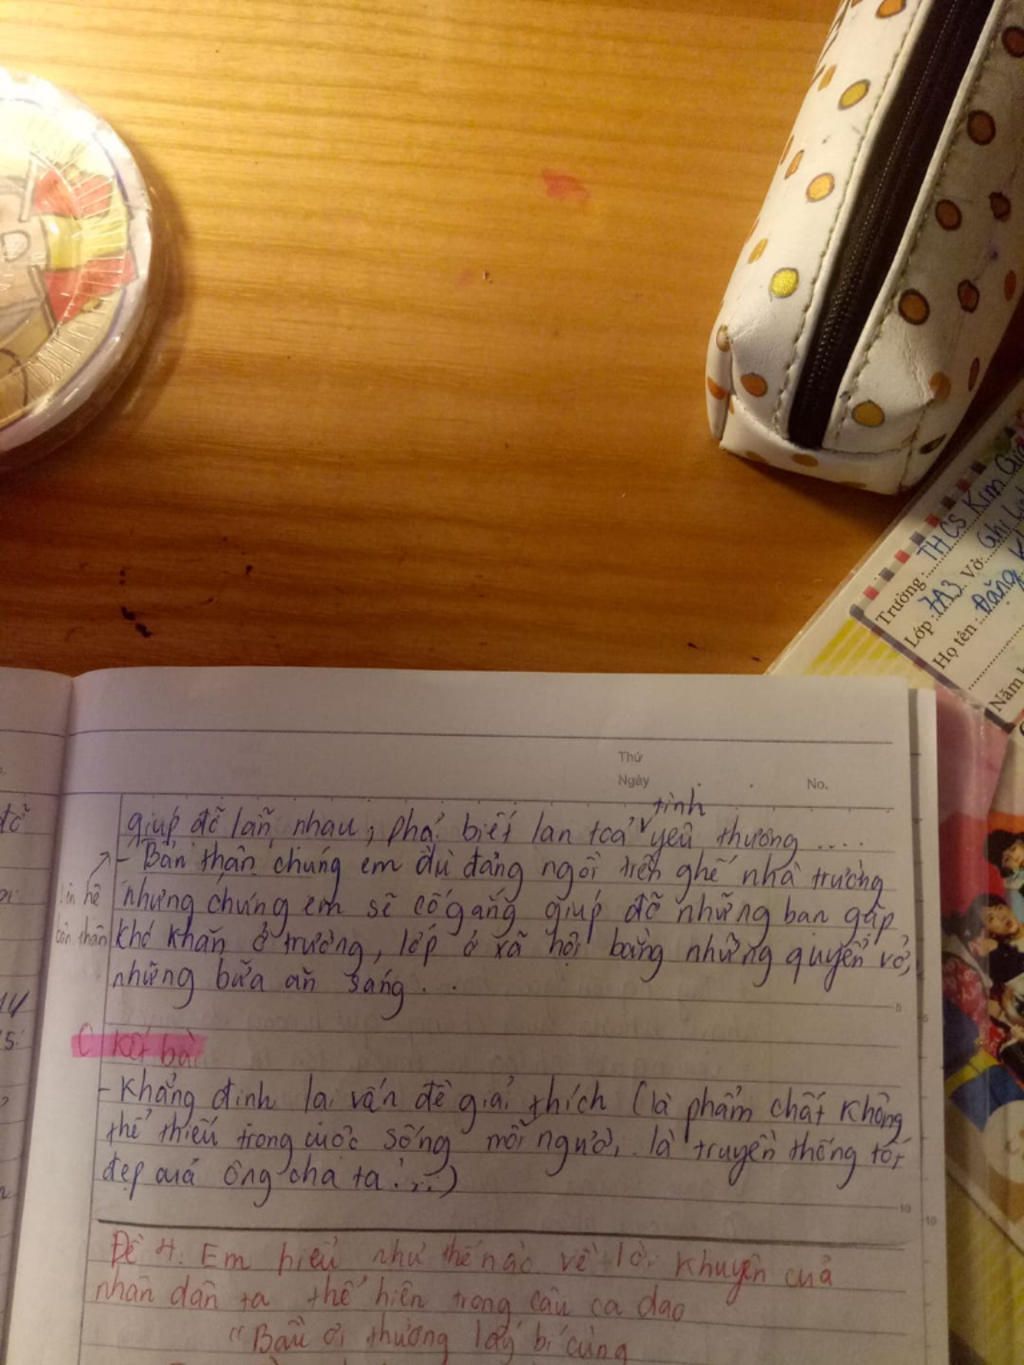 Trường: THCS Kim Gia
Lớp: 7A3 Vở: Ghi
Họ tên: Đăng
Năm
Thứ
Ngày
No.
tình
giúp đỡ lẫn nhau, phải biết lan toả yêu thương ....
- Bản thân chúng em dù đang ngồi trên ghế nhà trường
liên hệ
nhưng chúng em sẽ cố gắng giúp đỡ những bạn gặp
bản thân
khó khăn ở trường, lớp ở xã hội bằng những quyển vở,
những bữa ăn sáng . .
C kết bài
- Khẳng định lại vấn đề giải thích (là phẩm chất không
thể thiếu trong cuộc sống mỗi người, là truyền thống tốt
đẹp của ông cha ta ...)
Đề 4: Em hiểu như thế nào về lời khuyên của
nhân dân ta thể hiện trong câu ca dao
"Bầu ơi thương lấy bí cùng